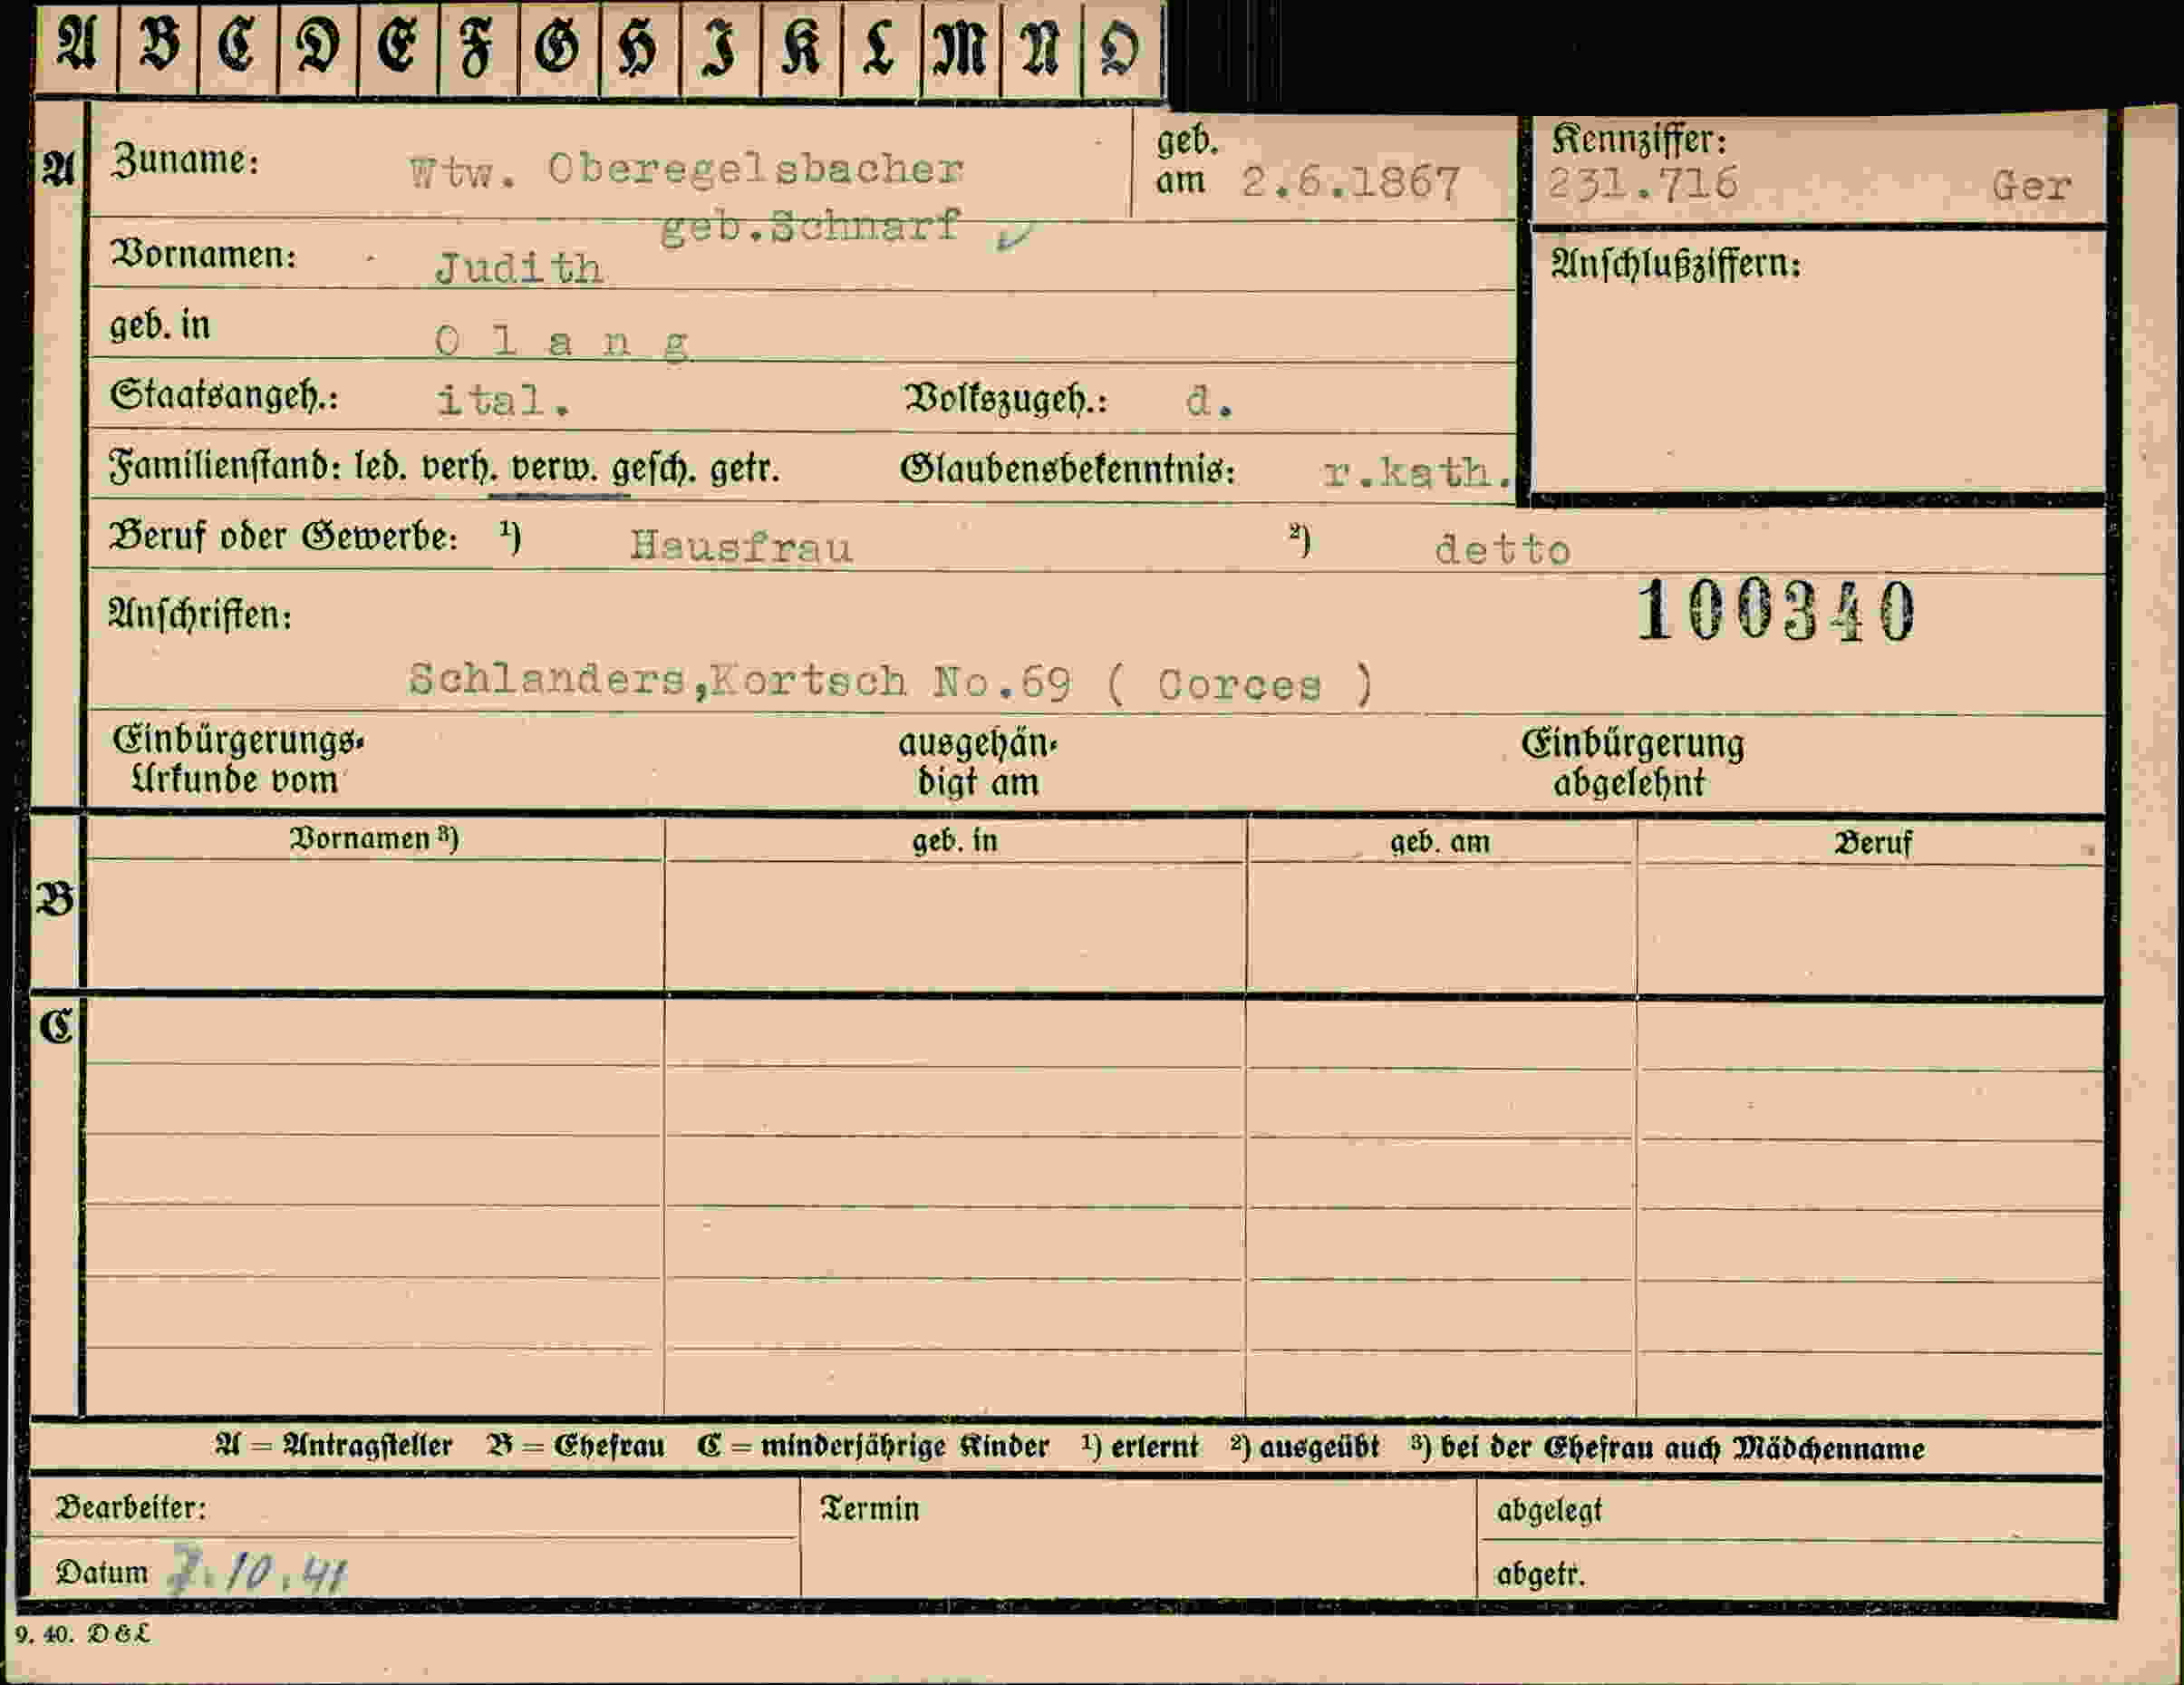 A B C D E F G H I K L M N O
A Zuname: Wtw. Oberegelsbacher geb. am 2.6.1867 Kennziffer: 231.716 Ger
geb.Schnarf
Vornamen: Judith Anschlußziffern:
geb. in O l a n g
Staatsangeh.: ital. Volkszugeh.: d.
Familienstand: led. verh. verw. gesch. getr. Glaubensbekenntnis: r.kath.
Beruf oder Gewerbe: ¹) Hausfrau ²) detto
Anschriften: 100340
Schlanders,Kortsch No.69 ( Corces )
Einbürgerungs- ausgehän- Einbürgerung
Urkunde vom digt am abgelehnt
Vornamen ³) geb. in geb. am Beruf
B
C
A = Antragsteller B = Ehefrau C = minderjährige Kinder ¹) erlernt ²) ausgeübt ³) bei der Ehefrau auch Mädchenname
Bearbeiter: Termin abgelegt
Datum 7.10.41 abgetr.
9. 40. D & L